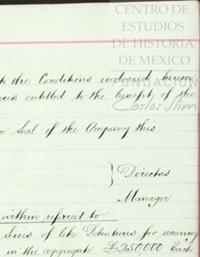 CENTRO DE
ESTUDIOS
DE HISTORIA
DE MEXICO
FUNDACIÓN
Carlos Slim
the Conditions endorsed hereon
entitled to the benefit of the
Seal of the Company this
Directors
Manager
within referred to
Series of like Debentures for securing
in the aggregate £250,000 each